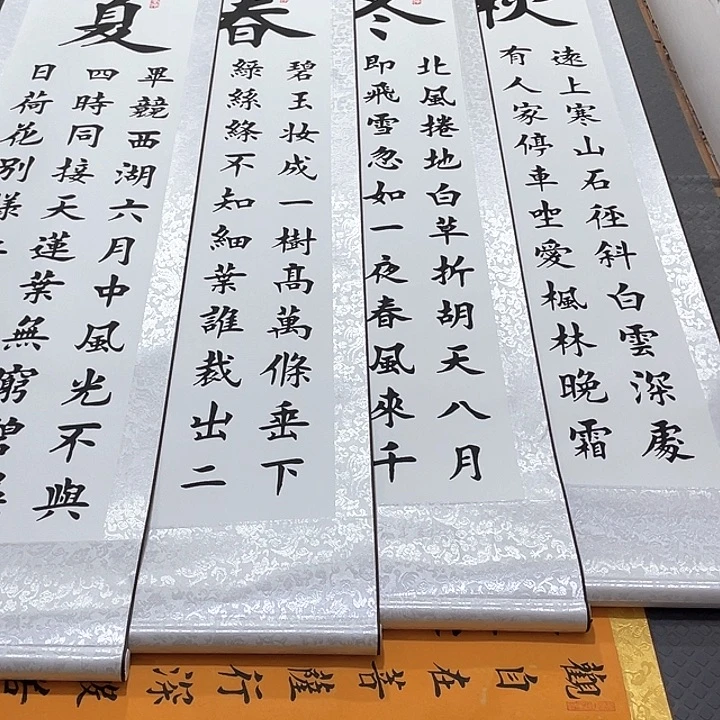 秋
遠上寒山石径斜白雲深處
有人家停車坐愛楓林晚霜
冬
北風捲地白草折胡天八月
即飛雪忽如一夜春風來千
春
碧玉妆成一樹高萬條垂下
綠絲絛不知細葉誰裁出二
夏
畢競西湖六月中風光不與
四時同接天蓮葉無窮碧
日荷花別樣
觀自在菩薩行深般若